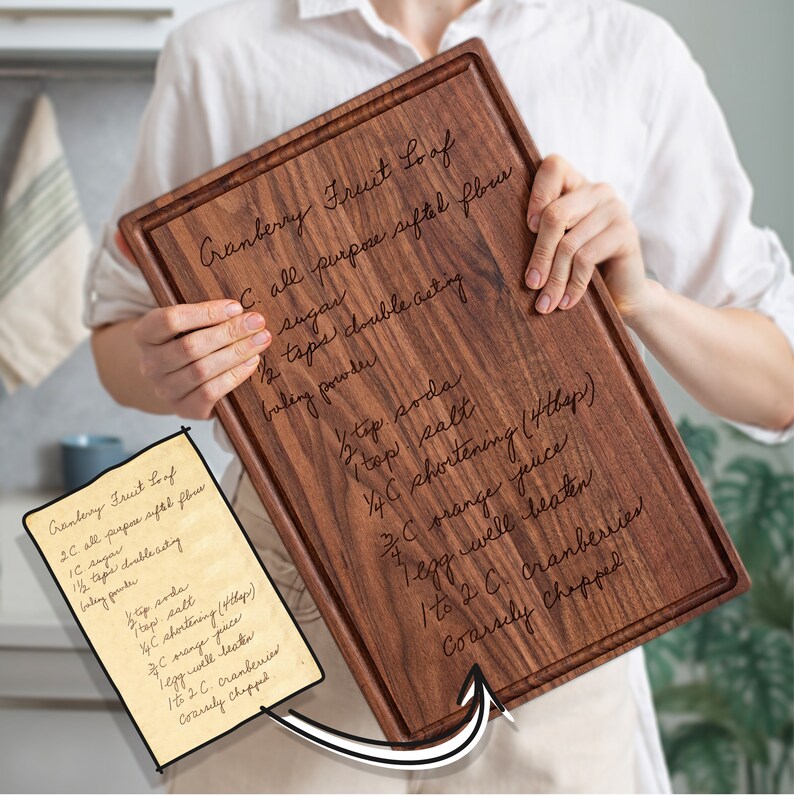 Cranberry Fruit Loaf
C. all purpose sifted flour
sugar
1/2 tsps double acting
baking powder
1/2 tsp. soda
1 tsp. salt
1/4 C shortening (4 tbsp)
3/4 C orange juice
1 egg well beaten
1 to 2 C. cranberries
Coarsely chopped
Cranberry Fruit Loaf
2 C. all purpose sifted flour
1 C. sugar
1 1/2 tsps double acting
baking powder
1/2 tsp. soda
1 tsp. salt
1/4 C shortening (4 tbsp)
3/4 C orange juice
1 egg well beaten
1 to 2 C. cranberries
Coarsely chopped